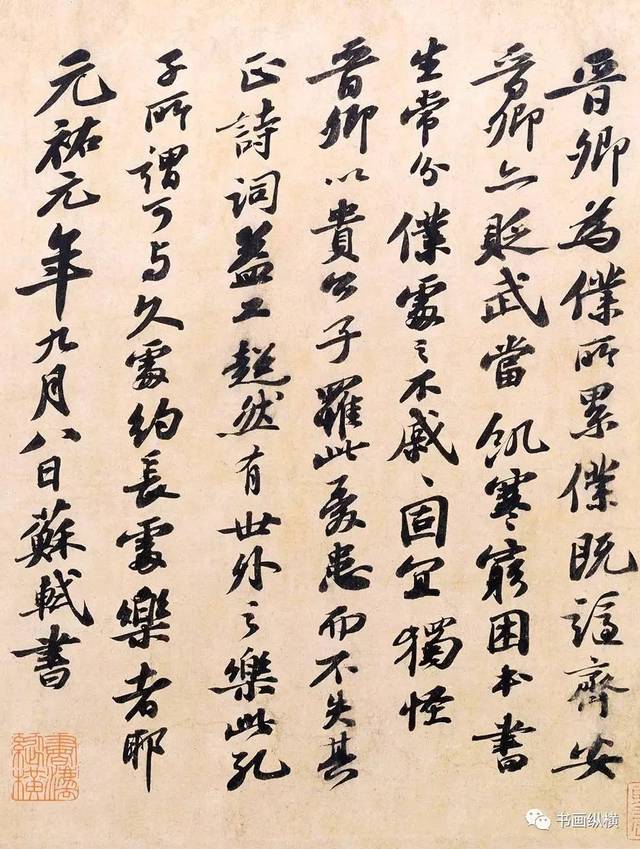 晉卿為僕所累僕既謫齊安
晉卿亦貶武當飢寒窮困本書
生常分僕處之不戚〻固宜獨怪
晉卿以貴公子罹此憂患而不失其
正詩詞益工超然有世外之樂此孔
子所謂可与久處約長處樂者耶
元祐元年九月八日蘇軾書
书画纵横